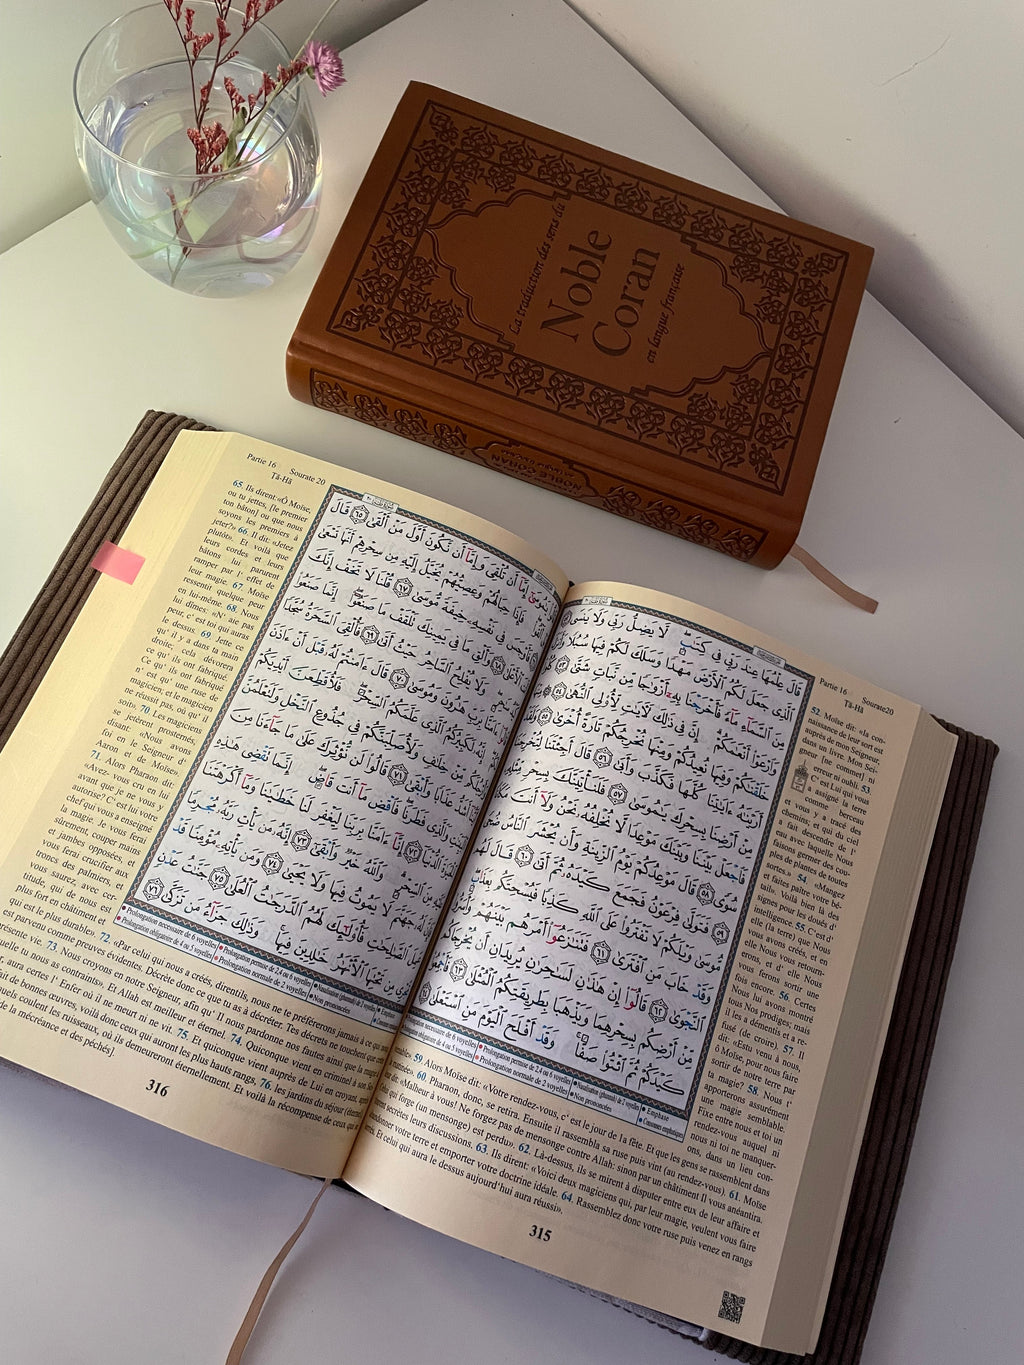 La traduction des sens du
Noble
Coran
en langue française
NOBLE CORAN
Partie 16 Sourate20
Tâ-Hâ
قَالَ عِلْمُهَا عِندَ رَبِّي فِي كِتَٰبٍ لَّا يَضِلُّ رَبِّي وَلَا يَنسَى
الَّذِي جَعَلَ لَكُمُ الْأَرْضَ مَهْدًا وَسَلَكَ لَكُمْ فِيهَا سُبُلًا وَأَنزَلَ
مِنَ السَّمَاءِ مَاءً فَأَخْرَجْنَا بِهِ أَزْوَاجًا مِّن نَّبَاتٍ شَتَّىٰ
وَارْعَوْا أَنْعَامَكُمْ إِنَّ فِي ذَٰلِكَ لَآيَاتٍ لِّأُولِي النُّهَىٰ
خَلَقْنَاكُمْ وَفِيهَا نُعِيدُكُمْ وَمِنْهَا نُخْرِجُكُمْ تَارَةً أُخْرَىٰ
أَرَيْنَاهُ آيَاتِنَا كُلَّهَا فَكَذَّبَ وَأَبَىٰ ٥٦ قَالَ أَجِئْتَنَا لِتُخْرِجَنَا
مِنْ أَرْضِنَا بِسِحْرِكَ يَا مُوسَىٰ ٥٧ فَلَنَأْتِيَنَّكَ بِسِحْرٍ مِّثْلِهِ
فَاجْعَلْ بَيْنَنَا وَبَيْنَكَ مَوْعِدًا لَّا نُخْلِفُهُ نَحْنُ وَلَا أَنتَ
سُوًى قَالَ مَوْعِدُكُمْ يَوْمُ الزِّينَةِ وَأَن يُحْشَرَ النَّاسُ
فَتَوَلَّىٰ فِرْعَوْنُ فَجَمَعَ كَيْدَهُ ثُمَّ أَتَىٰ ٦٠ قَالَ لَهُم
مُّوسَىٰ وَيْلَكُمْ لَا تَفْتَرُوا عَلَى اللَّهِ كَذِبًا فَيُسْحِتَكُم بِعَذَابٍ
وَقَدْ خَابَ مَنِ افْتَرَىٰ ٦١ فَتَنَازَعُوا أَمْرَهُم بَيْنَهُمْ وَأَسَرُّوا
النَّجْوَىٰ ٦٢ قَالُوا إِنْ هَٰذَانِ لَسَاحِرَانِ يُرِيدَانِ أَن يُخْرِجَاكُم
مِّنْ أَرْضِكُم بِسِحْرِهِمَا وَيَذْهَبَا بِطَرِيقَتِكُمُ الْمُثْلَىٰ ٦٣ فَأَجْمِعُوا
كَيْدَكُمْ ثُمَّ ائْتُوا صَفًّا وَقَدْ أَفْلَحَ الْيَوْمَ مَنِ اسْتَعْلَىٰ
Prolongation permise de 2,4 ou 6 voyelles
Prolongation normale de 2 voyelles
Nasalisation (ghunna) de 2 voyelles
Non prononcées
Emphase
Consonnes emphatiques
52. Moïse dit: «La con-
naissance de leur sort est
auprès de mon Seigneur,
dans un livre. Mon Sei-
gneur [ne commet] ni
erreur ni oubli. 53.
C' est Lui qui vous
a assigné la terre
comme berceau
et vous y a tracé des
chemins; et qui du ciel
a fait descendre de l'
eau avec laquelle Nous
faisons germer des cou-
ples de plantes de toutes
sortes.» 54. «Mangez
et faites paître votre bé-
tail». Voilà bien là des
signes pour les doués d'
intelligence. 55. C' est d'
elle (la terre) que Nous
vous avons créés, et en
elle Nous vous retourn-
erons, et d' elle Nous
vous ferons sortir une
fois encore. 56. Certes
Nous lui avons montré
tous Nos prodiges; mais
il les a démentis et a re-
fusé (de croire). 57. Il
dit: «Es-tu venu à nous,
ô Moïse, pour nous faire
sortir de notre terre par
ta magie? 58. Nous t'
apporterons assurément
une magie semblable.
Fixe entre nous et toi un
rendez-vous auquel ni
nous ni toi ne manquer-
ons, dans un lieu con-
59. Alors Moïse dit: «Votre rendez-vous, c' est le jour de la fête. Et que les gens se rassemblent dans
60. Pharaon, donc, se retira. Ensuite il rassembla sa ruse puis vint (au rendez-vous). 61. Moïse
dit: «Malheur à vous! Ne forgez pas de mensonge contre Allah: sinon par un châtiment Il vous anéantira.
qui forge (un mensonge) est perdu». 62. Là-dessus, ils se mirent à disputer entre eux de leur affaire et
secrètes leurs discussions. 63. Ils dirent: «Voici deux magiciens qui, par leur magie, veulent vous faire
abandonner votre terre et emporter votre doctrine idéale. 64. Rassemblez donc votre ruse puis venez en rangs
serrés. Et celui qui aura le dessus aujourd'hui aura réussi».
315
Partie 16 Sourate 20
Tâ-Hâ
يَا مُوسَىٰ إِمَّا أَن تُلْقِيَ وَإِمَّا أَن نَّكُونَ أَوَّلَ مَنْ أَلْقَىٰ ٦٥ قَالَ
فَإِذَا حِبَالُهُمْ وَعِصِيُّهُمْ يُخَيَّلُ إِلَيْهِ مِن سِحْرِهِمْ أَنَّهَا تَسْعَىٰ
فَأَوْجَسَ فِي نَفْسِهِ خِيفَةً مُّوسَىٰ ٦٧ قُلْنَا لَا تَخَفْ إِنَّكَ
وَأَلْقِ مَا فِي يَمِينِكَ تَلْقَفْ مَا صَنَعُوا إِنَّمَا صَنَعُوا
وَلَا يُفْلِحُ السَّاحِرُ حَيْثُ أَتَىٰ ٦٩ فَأُلْقِيَ السَّحَرَةُ سُجَّدًا
آمَنَّا بِرَبِّ هَارُونَ وَمُوسَىٰ ٧٠ قَالَ آمَنتُمْ لَهُ قَبْلَ أَنْ آذَنَ
إِنَّهُ لَكَبِيرُكُمُ الَّذِي عَلَّمَكُمُ السِّحْرَ فَلَأُقَطِّعَنَّ أَيْدِيَكُمْ
وَأَرْجُلَكُم مِّنْ خِلَافٍ وَلَأُصَلِّبَنَّكُمْ فِي جُذُوعِ النَّخْلِ وَلَتَعْلَمُنَّ
أَيُّنَا أَشَدُّ عَذَابًا وَأَبْقَىٰ ٧١ قَالُوا لَن نُّؤْثِرَكَ عَلَىٰ مَا جَاءَنَا مِنَ
وَالَّذِي فَطَرَنَا فَاقْضِ مَا أَنتَ قَاضٍ إِنَّمَا تَقْضِي هَٰذِهِ
الدُّنْيَا ٧٢ إِنَّا آمَنَّا بِرَبِّنَا لِيَغْفِرَ لَنَا خَطَايَانَا وَمَا أَكْرَهْتَنَا
مِنَ السِّحْرِ وَاللَّهُ خَيْرٌ وَأَبْقَىٰ ٧٣ إِنَّهُ مَن يَأْتِ رَبَّهُ مُجْرِمًا
جَهَنَّمَ لَا يَمُوتُ فِيهَا وَلَا يَحْيَىٰ ٧٤ وَمَن يَأْتِهِ مُؤْمِنًا قَدْ
الصَّالِحَاتِ فَأُولَٰئِكَ لَهُمُ الدَّرَجَاتُ الْعُلَىٰ ٧٥ جَنَّاتُ عَدْنٍ
مِن تَحْتِهَا الْأَنْهَارُ خَالِدِينَ فِيهَا وَذَٰلِكَ جَزَاءُ مَن تَزَكَّىٰ ٧٦
Prolongation nécessaire de 6 voyelles
Prolongation permise de 2,4 ou 6 voyelles
Prolongation obligatoire de 4 ou 5 voyelles
Prolongation normale de 2 voyelles
Nasalisation (ghunna) de 2 voyelles
Non prononcées
65. Ils dirent:«Ô Moïse,
ou tu jettes, [le premier
ton bâton] ou que nous
soyons les premiers à
jeter?» 66. Il dit: «Jetez
plutôt». Et voilà que
leurs cordes et leurs
bâtons lui parurent
ramper par l' effet de
leur magie. 67. Moïse
ressentit quelque peur
en lui-même. 68. Nous
lui dîmes: «N' aie pas
peur, c' est toi qui auras
le dessus. 69. Jette ce
qu' il y a dans ta main
droite; cela dévorera
ce qu' ils ont fabriqué.
Ce qu' ils ont fabriqué
n' est qu' une ruse de
magicien; et le magicien
ne réussit pas, où qu' il
soit». 70. Les magiciens
se jetèrent prosternés,
disant: «Nous avons
foi en le Seigneur d'
Aaron et de Moïse».
71. Alors Pharaon dit:
«Avez- vous cru en lui
avant que je ne vous y
autorise? C' est lui votre
chef qui vous a enseigné
la magie. Je vous ferai
sûrement, couper mains
et jambes opposées, et
vous ferai crucifier aux
troncs des palmiers, et
vous saurez, avec cer-
titude, qui de nous est
plus fort en châtiment et
qui est le plus durable». 72. «Par celui qui nous a créés, dirent-ils, nous ne te préférerons jamais à ce qui
est parvenu comme preuves évidentes. Décrète donc ce que tu as à décréter. Tes décrets ne touchent que
présente vie. 73. Nous croyons en notre Seigneur, afin qu' Il nous pardonne nos fautes ainsi que la magie à
laquelle tu nous as contraints». Et Allah est meilleur et éternel. 74. Quiconque vient en criminel à son Seigneur,
aura certes l' Enfer où il ne meurt ni ne vit. 75. Et quiconque vient auprès de Lui en croyant, après
fait de bonnes œuvres, voilà donc ceux qui auront les plus hauts rangs, 76. les jardins du séjour (éternel),
lesquels coulent les ruisseaux, où ils demeureront éternellement. Et voilà la récompense de ceux qui
de la mécréance et des péchés]
316